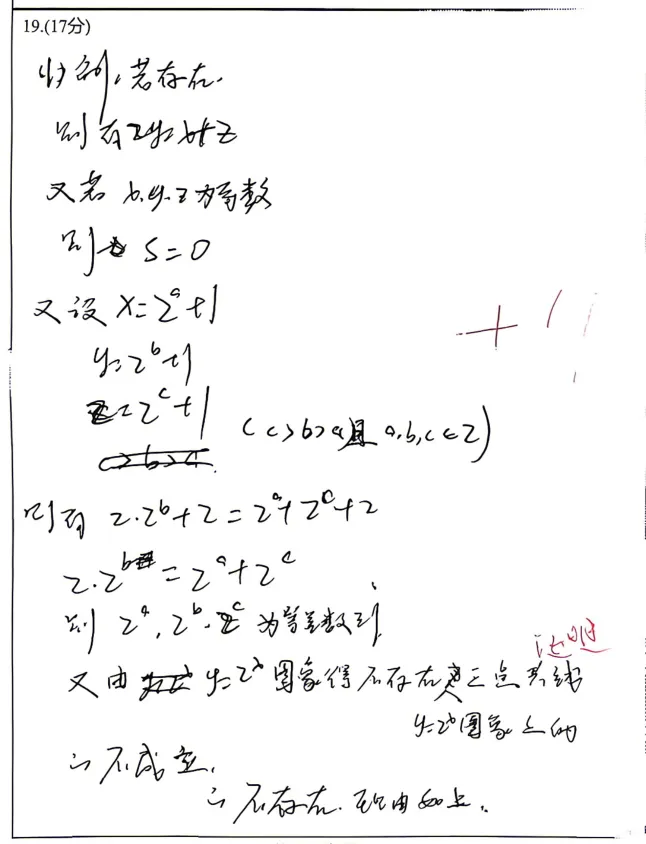 19.(17分)
归纳,若存在.
则有2y=x+z
又若 x.y.z为等数
则 S=0
又设 x=2ᵃ+1
+1
y=2ᵇ+1
z=2ᶜ+1
(c>b>a且 a,b,c∈Z)
c>b>a.
则有 2·2ᵇ+2=2ᵃ+2ᶜ+2
2·2ᵇ=2ᵃ+2ᶜ
则 2ᵃ,2ᵇ.2ᶜ为等差数列
证明过
又由 y=2ˣ图象得不存在三点共线
y=2ˣ图象上的
∴不成立.
∴不存在.理由如上.